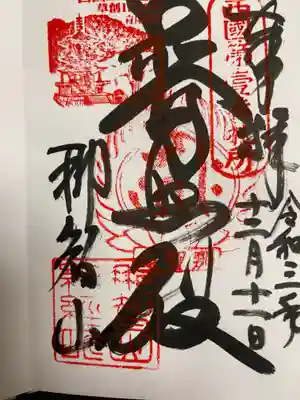 西國第壹番札所
奉拝
令和三年
十二月十一日
普照殿
那智山